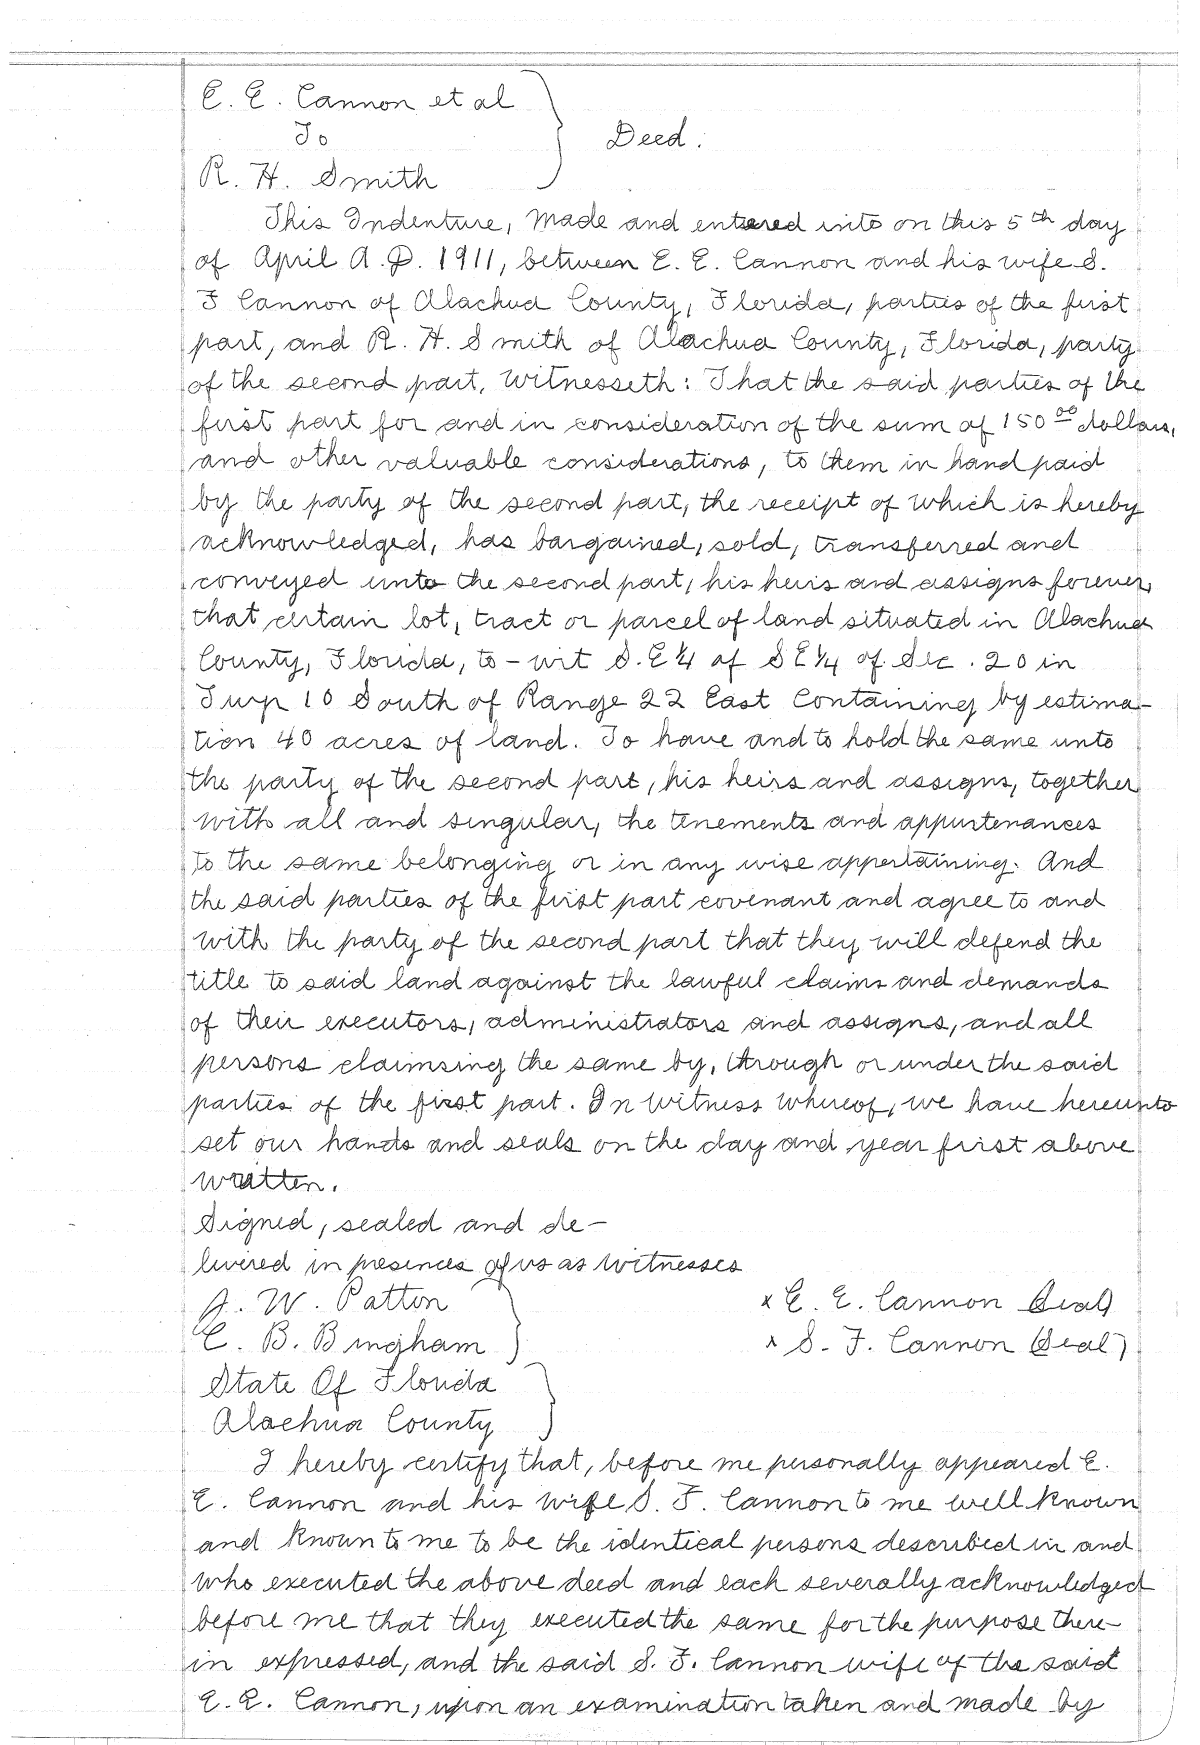 E. E. Cannon et al
To
Deed.
R. H. Smith
This Indenture, Made and entered into on this 5th day
of April A.D. 1911, between E. E. Cannon and his wife S.
F Cannon of Alachua County, Florida, parties of the first
part, and R. H. Smith of Alachua County, Florida, party
of the second part, Witnesseth: That the said parties of the
first part for and in consideration of the sum of 150 00 dollars,
and other valuable considerations, to them in hand paid
by the party of the second part, the receipt of which is hereby
acknowledged, has bargained, sold, transferred and
conveyed unto the second part, his heirs and assigns forever,
that certain lot, tract or parcel of land situated in Alachua
County, Florida, to-wit S. E 1/4 of S E 1/4 of Sec. 20 in
Twp 10 South of Range 22 East Containing by estima-
tion 40 acres of land. To have and to hold the same unto
the party of the second part, his heirs and assigns, together
with all and singular, the tenements and appurtenances
to the same belonging or in any wise appertaining. And
the said parties of the first part covenant and agree to and
with the party of the second part that they will defend the
title to said land against the lawful claims and demands
of their executors, administrators and assigns, and all
persons claimsing the same by, through or under the said
parties of the first part. In Witness Whereof, we have hereunto
set our hands and seals on the day and year first above
written.
Signed, sealed and de-
livered in presences of us as witnesses
J. W. Patton x E. E. Cannon (Seal)
C. B. Bingham x S. F. Cannon (Seal)
State Of Florida
Alachua County
I hereby certify that, before me personally appeared E.
E. Cannon and his wife S. F. Cannon to me well known
and known to me to be the identical persons described in and
who executed the above deed and each severally acknowledged
before me that they executed the same for the purpose there-
in expressed, and the said S. F. Cannon wife of the said
E. E. Cannon, upon an examination taken and made by